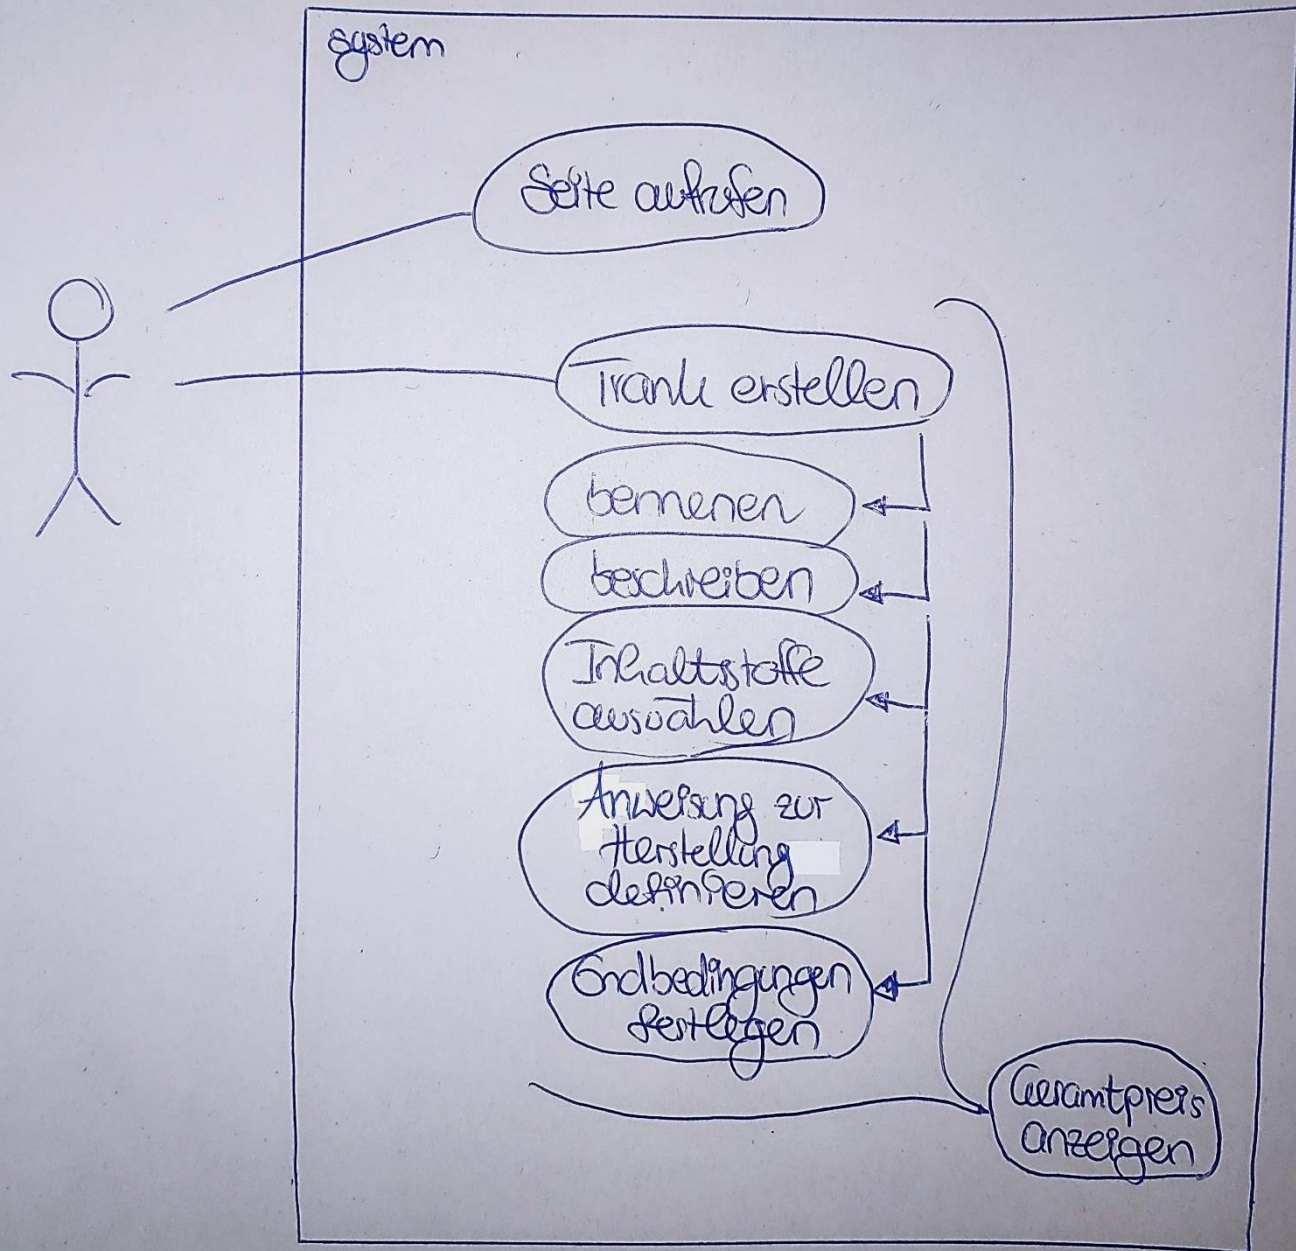 System
Seite aufrufen
Trank erstellen
bennenen
beschreiben
Inhaltsstoffe
auswählen
Anweisung zur
Herstellung
definieren
Endbedingungen
festlegen
Gesamtpreis
anzeigen